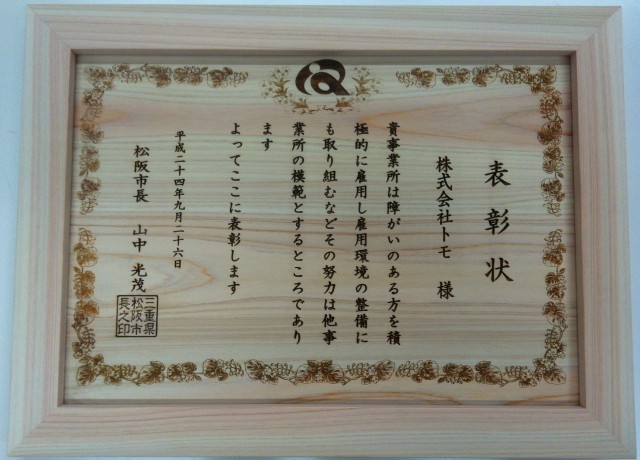 表彰状
株式会社トモ 様
貴事業所は障がいのある方を積
極的に雇用し雇用環境の整備に
も取り組むなどその努力は他事
業所の模範とするところであり
ます
よってここに表彰します
平成二十四年九月二十六日
松阪市長 山中 光茂
三重県
松阪市
長之印